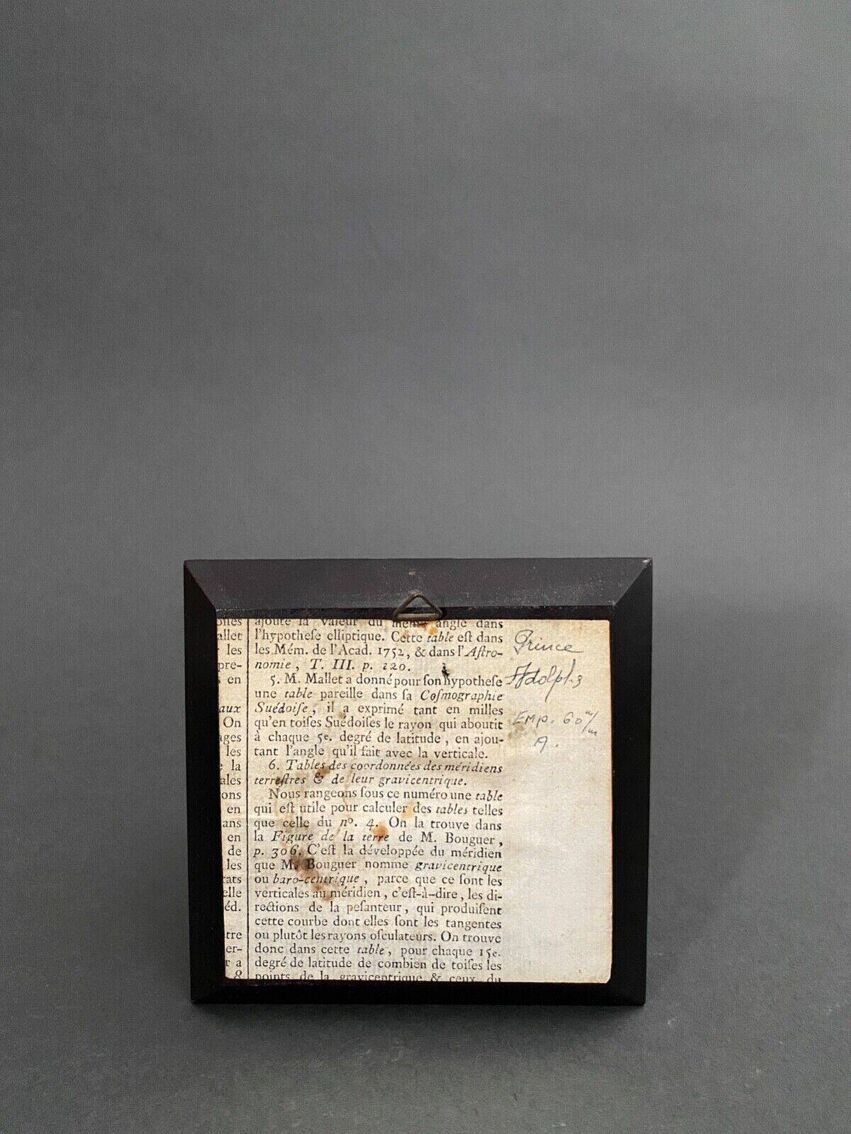 ones
allet
les
pre-
en
aux
On
ages
les
la
ales
ons
en
ans
en
de
les
tats
elle
éd.
tre
er-
r a
&
ajoute la valeur du même angle dans
l'hypotheſe elliptique. Cette table eſt dans
les Mém. de l'Acad. 1752, & dans l'Aſtro-
nomie, T. III. p. 120.
5. M. Mallet a donné pour ſon hypotheſe
une table pareille dans ſa Coſmographie
Suédoiſe, il a exprimé tant en milles
qu'en toiſes Suédoiſes le rayon qui aboutit
à chaque 5e. degré de latitude, en ajou-
tant l'angle qu'il fait avec la verticale.
6. Tables des coordonnées des méridiens
terreſtres & de leur gravicentrique.
Nous rangeons ſous ce numéro une table
qui eſt utile pour calculer des tables telles
que celle du nº. 4. On la trouve dans
la Figure de la terre de M. Bouguer,
p. 306. C'eſt la développée du méridien
que M. Bouguer nomme gravicentrique
ou baro-centrique, parce que ce ſont les
verticales au méridien, c'eſt-à-dire, les di-
rections de la peſanteur, qui produiſent
cette courbe dont elles ſont les tangentes
ou plutôt les rayons oſculateurs. On trouve
donc dans cette table, pour chaque 15e.
degré de latitude de combien de toiſes les
points de la gravicentrique & ceux du
Prince
Emp. 60 m/m
A.